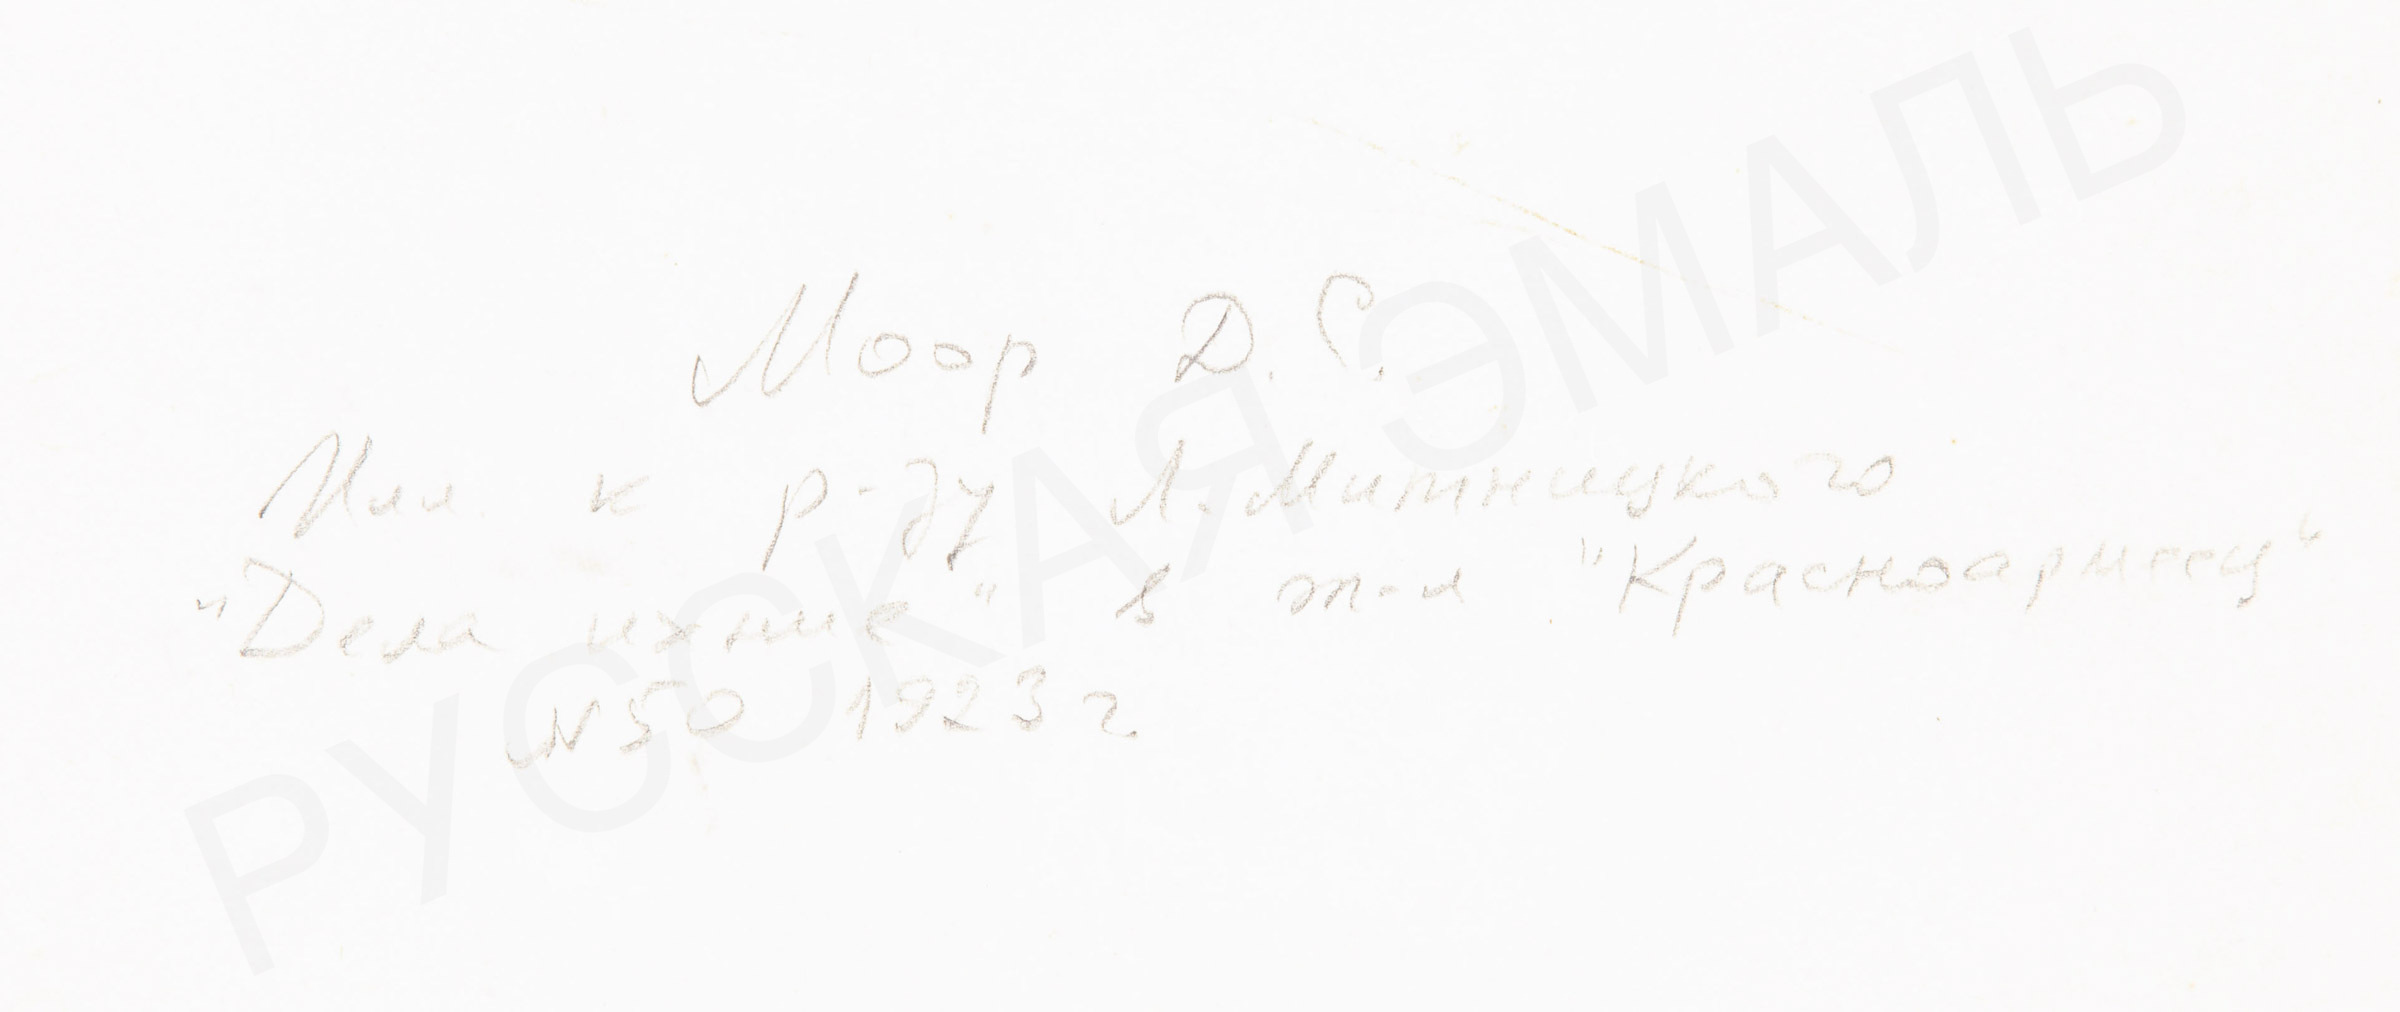 Моор Д. С.
Илл. к р-ду Л. Митницкого
"Дела ихние" в ж-л "Красноармеец"
N 50 1923 г
РУССКАЯ ЭМАЛЬ